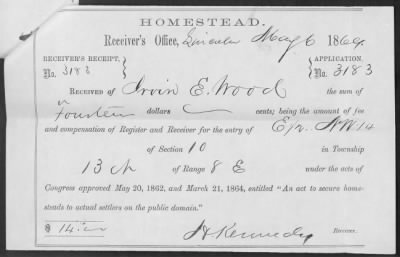 HOMESTEAD.
Receiver's Office, Lincoln May 6 1869.
RECEIVER'S RECEIPT, APPLICATION,
No. 3183 No. 3183
RECEIVED OF Irvin E. Wood the sum of
Fourteen dollars cents; being the amount of fee
and compensation of Register and Receiver for the entry of E/2 NW 14
of Section 10 in Township
13 N of Range 8 E under the acts of
Congress approved May 20, 1862, and March 21, 1864, entitled "An act to secure home-
steads to actual settlers on the public domain."
$ 14. Kennedy RECEIVER.